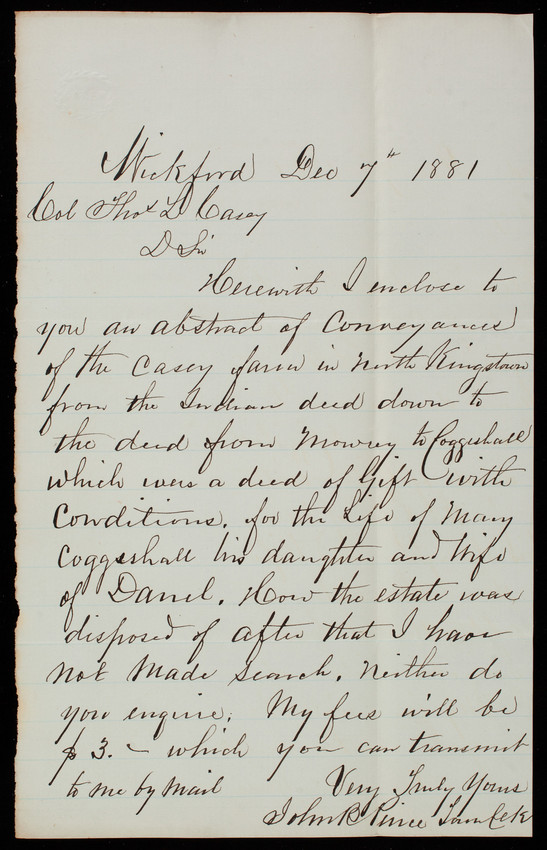 Wickford Dec 7th 1881
Col Thos L Casey
D Sir
Herewith I enclose to
you an abstract of Conveyances
of the Casey farm in North Kingstown
from the Indian deed down to
the deed from Mowrey to Coggeshall
which was a deed of Gift with
Conditions. for the Life of Mary
Coggeshall his daughter and Wife
of Daniel. How the estate was
disposed of after that I have
not Made Search. Neither do
you enquire. My fees will be
$3.- which you can transmit
to me by Mail
Very Truly Yours
John B Pierce Town Clk